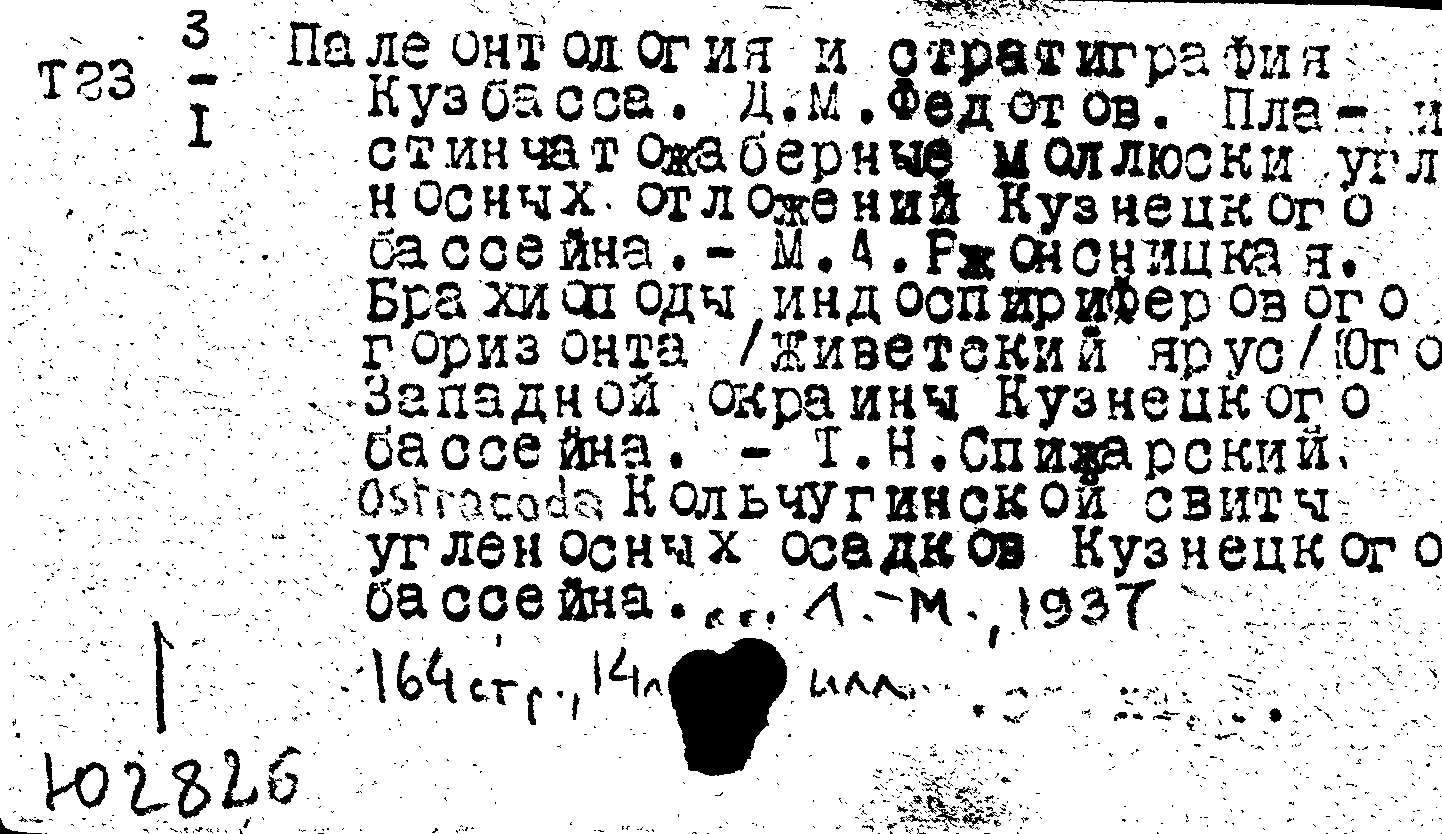 3
ТЯЗ - Палеонтология и стратиграфия
I
Кузбасса. Д.М.Федотов. Пла-
стинчатожаберные моллюски угл
носных отложений Кузнецкого
бассейна.- М.А.Ржонсницкая.
Брахиоподы индоспириферового
горизонта /Живетский ярус/Юго
Западной окраины Кузнецкого
бассейна. - Т.Н.Спижарский.
Ostracoda Кольчугинской свиты
угленосных осадков Кузнецкого
бассейна.... Л.-М.,1937
164 стр., 14л илл.
Ю2826